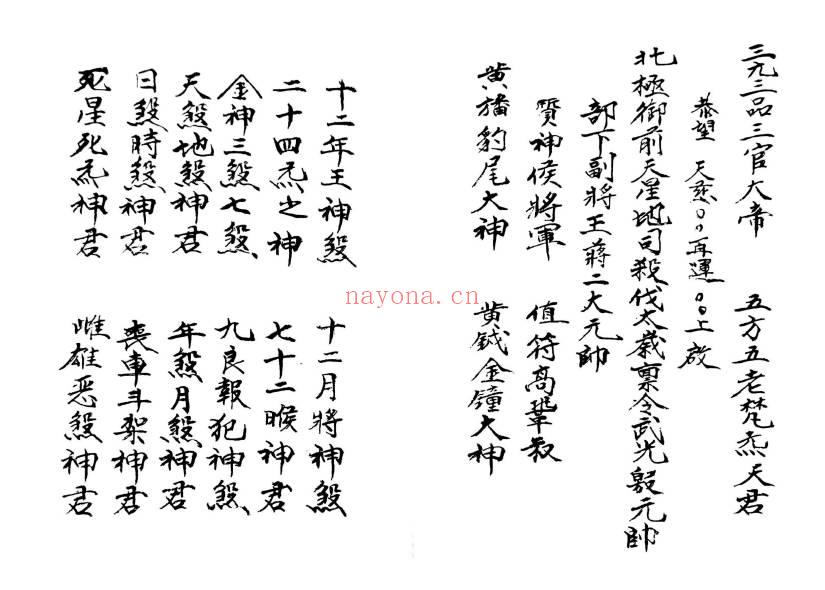 三元三品三官大帝　五方五老梵炁天君
恭望　天慈〇〇再運〇〇上啟
北極御前天星地司殺伐太歲稟令武光殷元帥
部下副將王蔣二大元帥
賢神侯將軍　值符高鞏叔
黄旛豹尾大神　黄鉞金鐘大神
十二年王神煞　十二月將神煞
二十四炁之神　七十二㬋神君
金神三煞七煞　九良報犯神煞
天煞地煞神君　年煞月煞神君
日煞時煞神君　喪車斗架神君
死星死炁神君　雌雄恶煞神君
nayona.cn